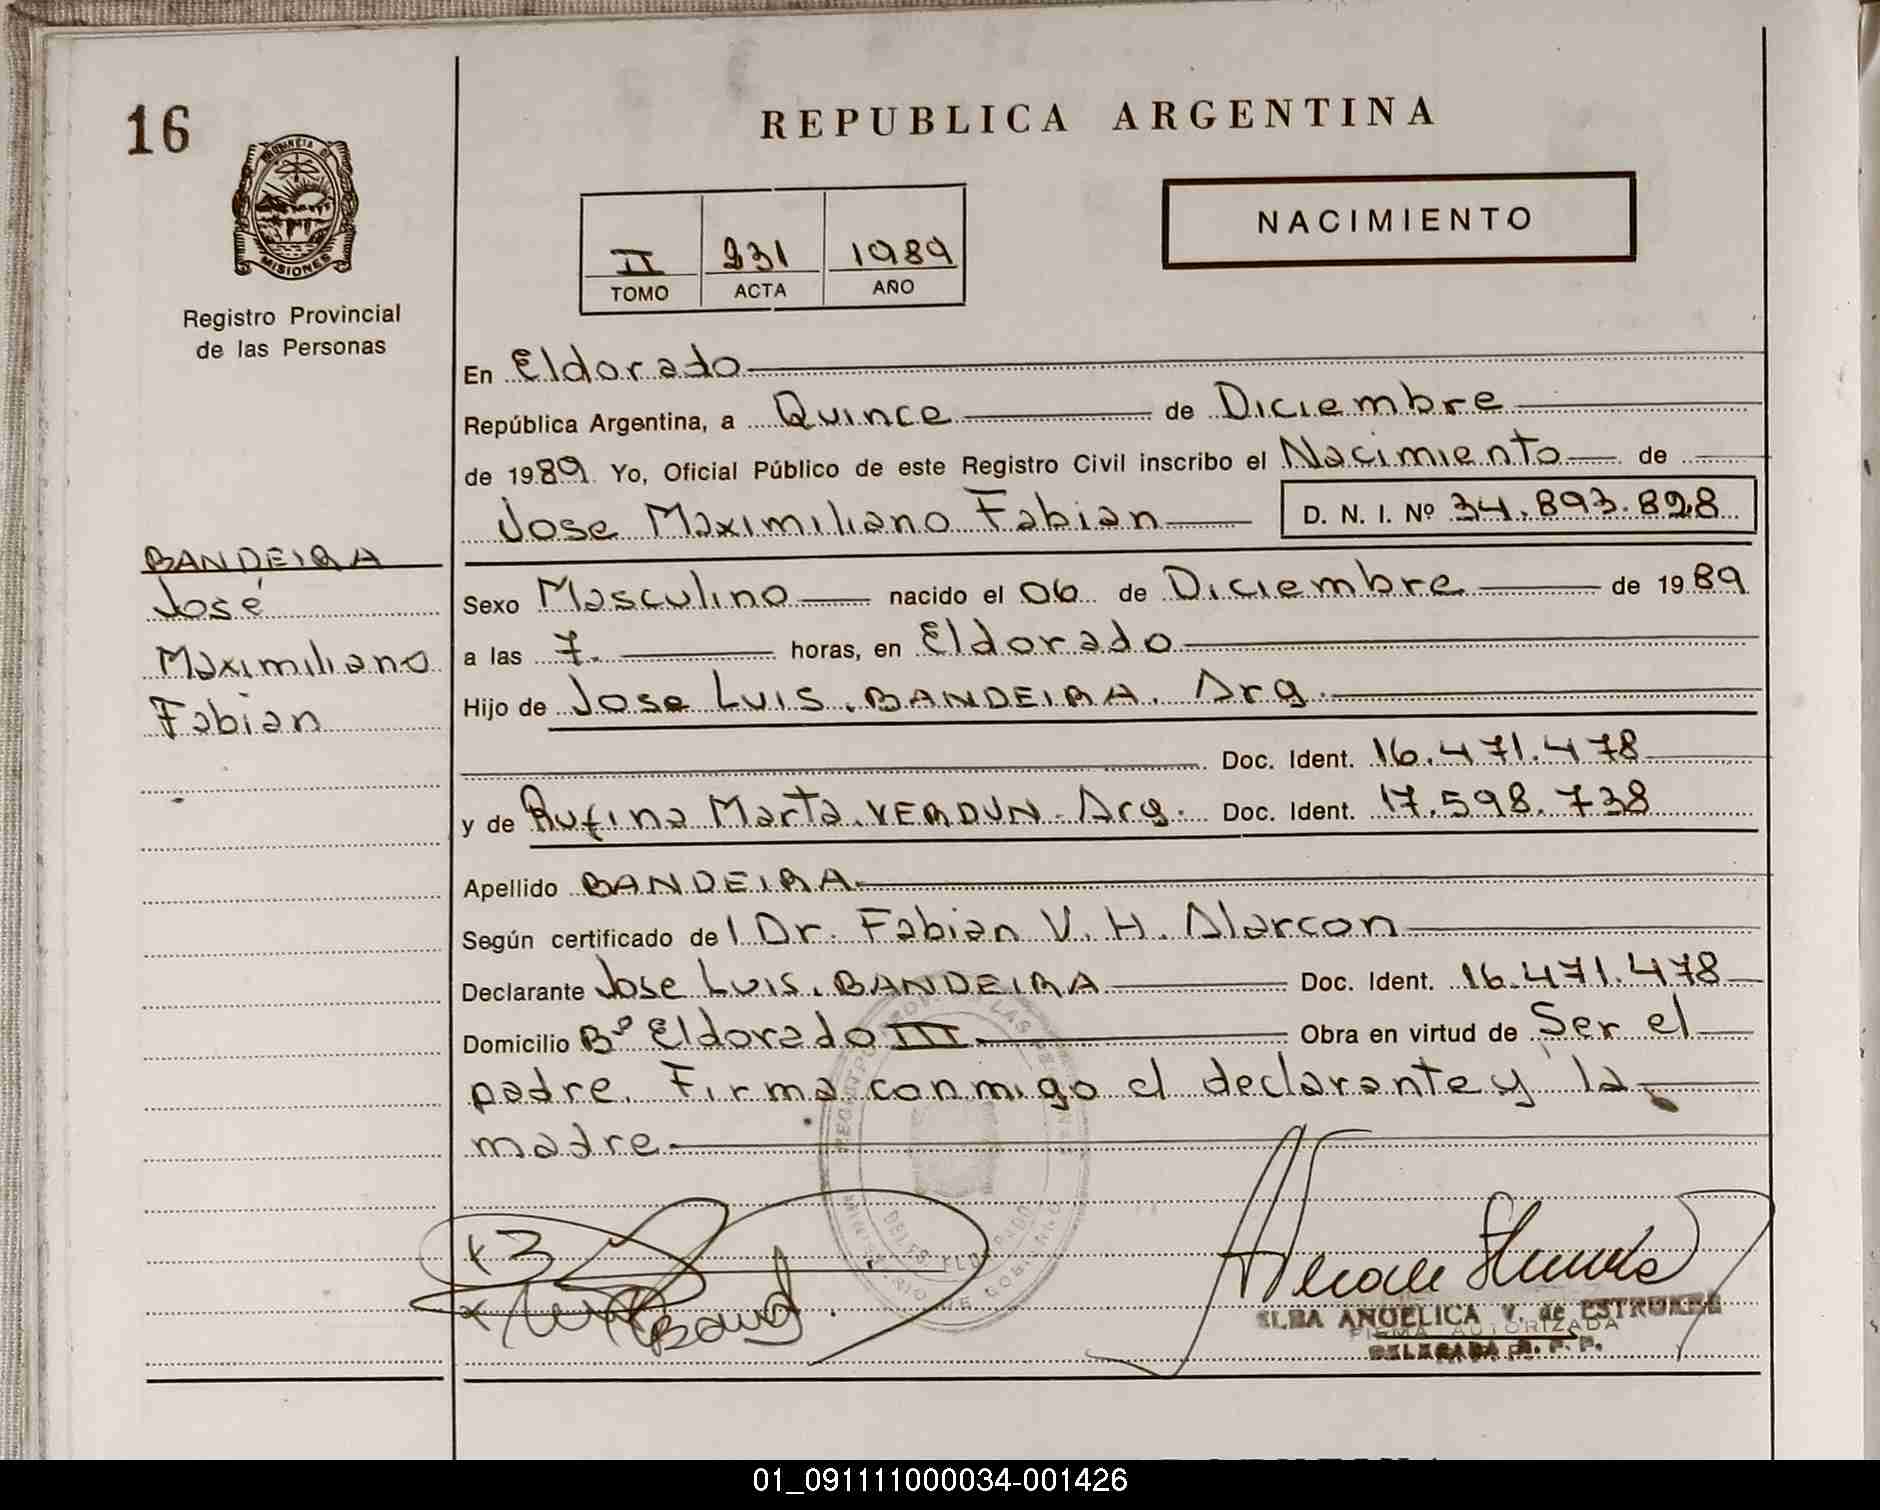 16
PROVINCIA DE
MISIONES
Registro Provincial
de las Personas
BANDEIRA
José
Maximiliano
Fabian
REPUBLICA ARGENTINA
II 231 1989
TOMO ACTA AÑO
NACIMIENTO
En Eldorado
República Argentina, a Quince de Diciembre
de 1989. Yo, Oficial Público de este Registro Civil inscribo el Nacimiento de
Jose Maximiliano Fabian D. N. I. Nº 34.893.828
Sexo Masculino nacido el 06 de Diciembre de 1989
a las 7. horas, en Eldorado
Hijo de Jose Luis. BANDEIRA. Arg.
Doc. Ident. 16.471.478
y de Rufina Marta. VERDUN. Arg. Doc. Ident. 17.598.738
Apellido BANDEIRA.
Según certificado del Dr. Fabian V. H. Alarcon
Declarante Jose Luis. BANDEIRA Doc. Ident. 16.471.478
Domicilio Bº Eldorado III Obra en virtud de Ser el
padre. Firma conmigo el declarante y la
madre
ELBA ANGELICA V. de
FIRMA AUTORIZADA
DELEGADA R. P. P.
01_091111000034-001426